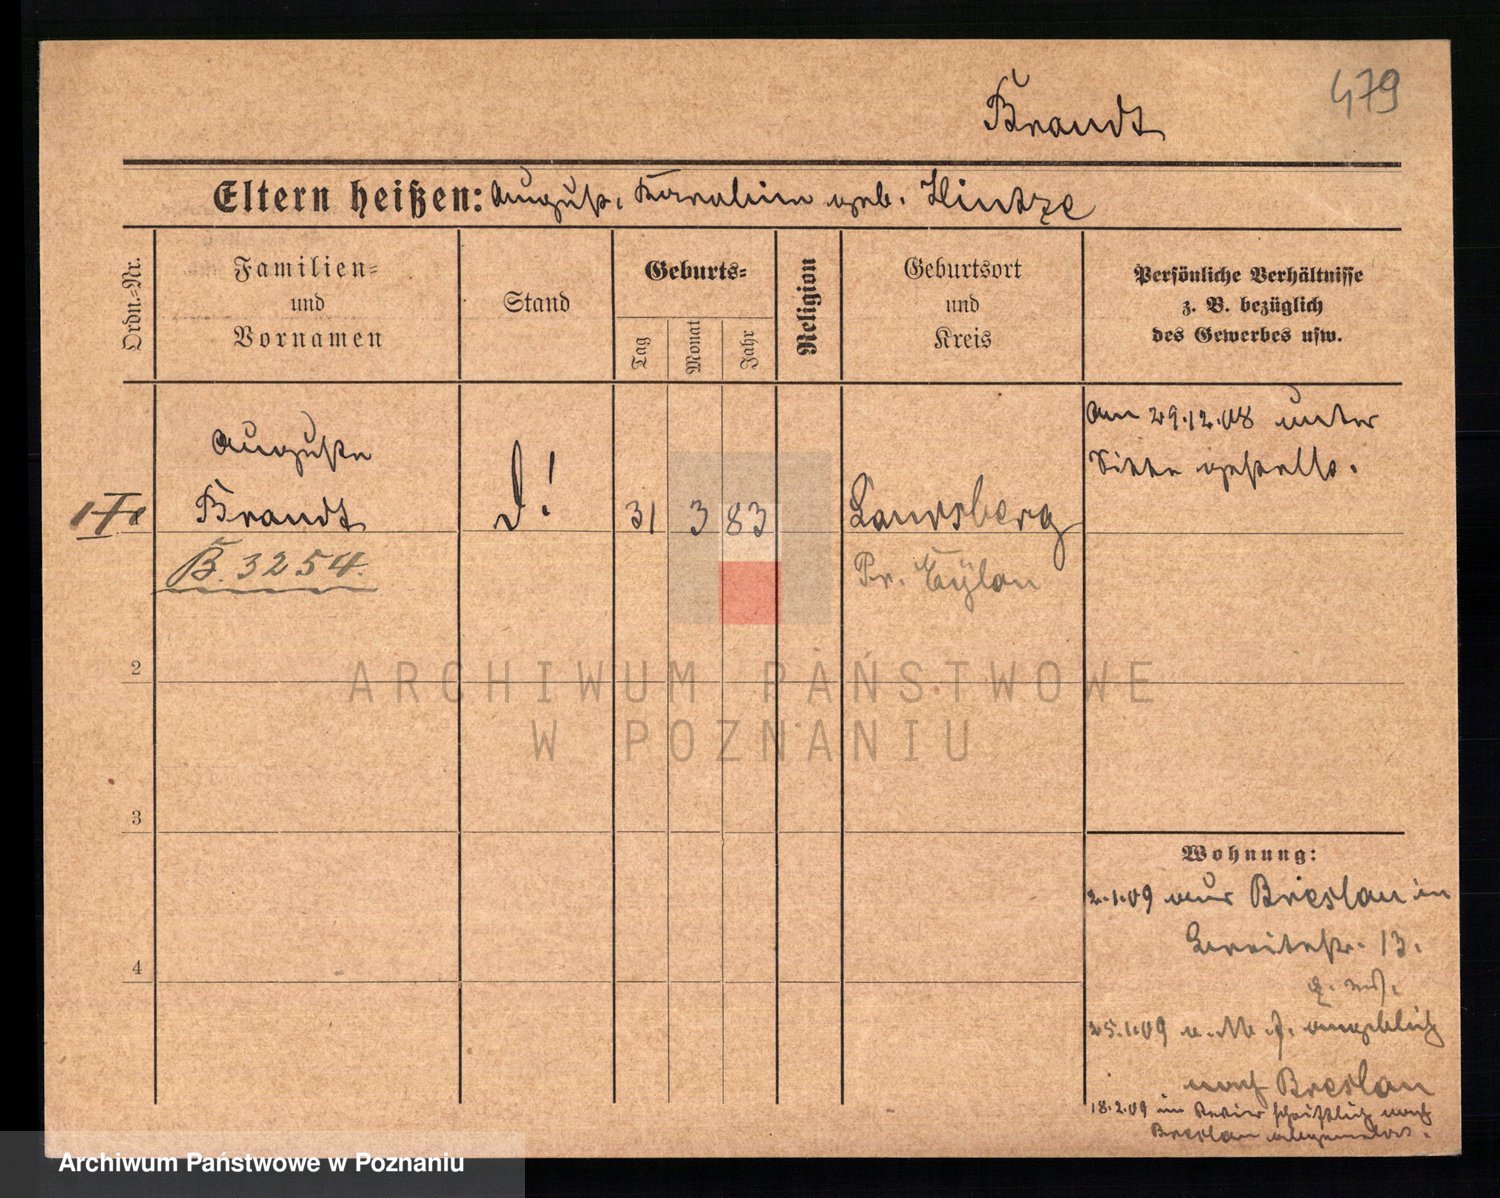 479
Brandt
Eltern heißen: August, Karoline geb. Hintze
Ordn.=Nr.
Familien=
und
Vornamen
Stand
Geburts=
Tag
Monat
Jahr
Religion
Geburtsort
und
Kreis
Persönliche Verhältnisse
z. B. bezüglich
des Gewerbes usw.
Auguste
Brandt
B. 3254.
D!
31
3
83
Landsberg
Pr. Eylau
Am 29.12.08 unter
Sitte gestellt.
2
3
4
Wohnung:
2.1.09 aus Breslau in
Breitestr. 13.
25.1.09 angeblich
nach Breslau
18.2.09 im Revier schriftlich nach
Breslau abgemeldet.
ARCHIWUM PAŃSTWOWE
W POZNANIU
Archiwum Państwowe w Poznaniu